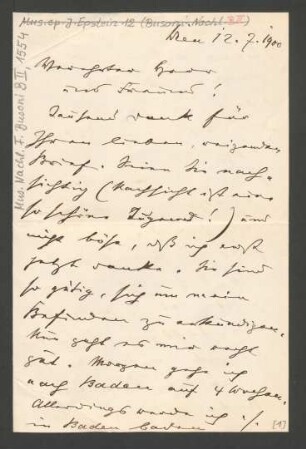 Mus.ep. J. Epstein 12 (Busoni-Nachl. B II)
Mus. Nachl. F. Busoni B II 1554
Wien 12. 7. 1900
Verehrter Herr
und Freund!
Tausend Dank für
Ihren lieben, reizenden
Brief. Seien Sie nach-
sichtig (Nachsicht ist eine
so schöne Tugend!) und
nicht böse, daß ich erst
jetzt danke. Sie sind
so gütig, sich um mein
Befinden zu erkundigen.
Nun geht es mir recht
gut. Morgen gehe ich
nach Baden auf 4 Wochen.
Allerdings werde ich ./.
in Baden baden
[1]